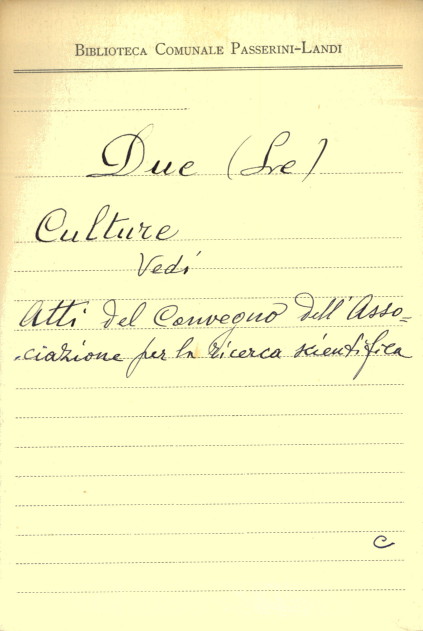 BIBLIOTECA COMUNALE PASSERINI-LANDI
Due (Le)
Culture
Vedi
Atti del Convegno dell'Asso-
-ciazione per la ricerca scientifica
c